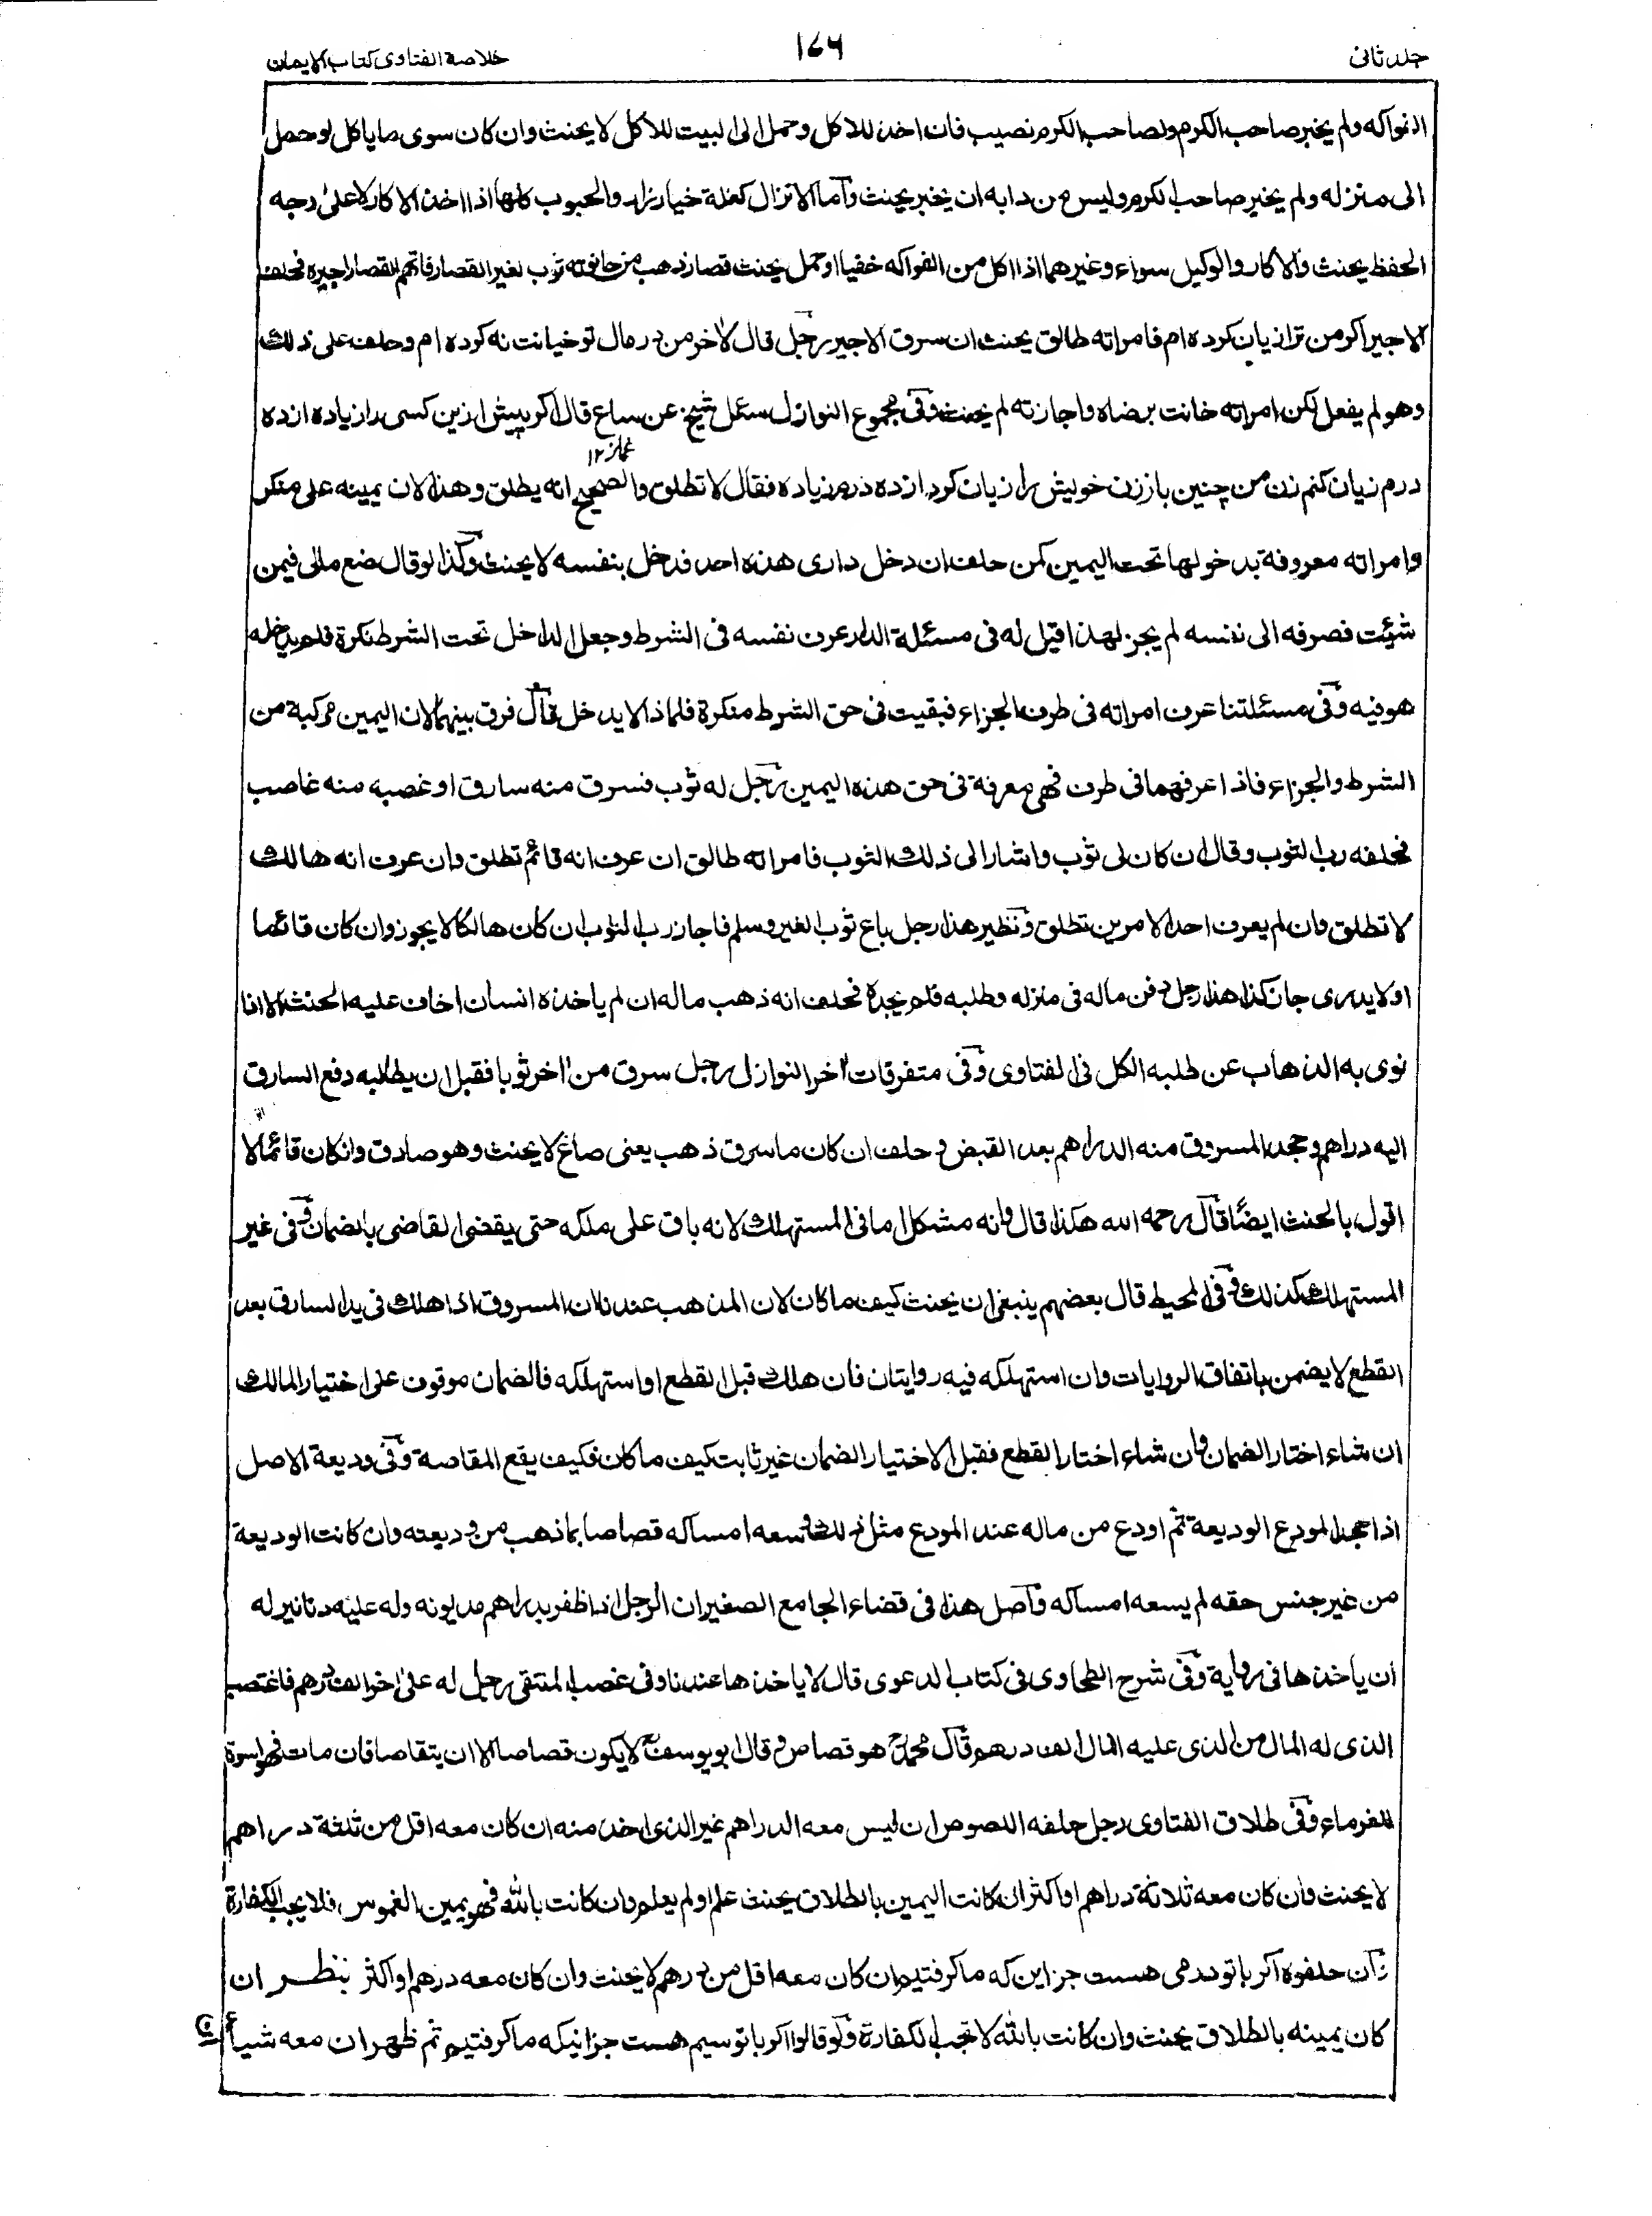 جلد ثانی
۱۷۶
خلاصة الفتاوی کتاب الایمان
الفواکه ولم یخبر صاحب الکرم ولصاحب الکرم نصیب فان اخذ للاکل وحمل الی البیت للاکل لا یحنث وان کان سوی ما یاکل لو حمل
الی منزله ولم یخبر صاحب الکرم ولیس من دابه ان یخبر یحنث واما الانزال کغلة خیار زار والحبوب کلها اذا اخذ الاکار لا علی وجه
الحفظ یحنث والاکار والوکیل سواء وغیرهما اذا اکل من الفواکه خفیا او حمل یحنث قصار ذهب من حانوته ثوب لغیر القصار فاتهم القصار اجیره فحلف
الاجیر اکر من ترا زیان کرده ام فامراته طالق یحنث ان سرق الاجیر رجل قال لاخر من در مال تو خیانت نه کرده ام وحلف علی ذلک
وهو لم یفعل لکن امراته خانت برضاه واجازته لم یحنث وفی مجموع النوازل سئل شیخ عن ساع قال اکر پیش ازین کسی را زیاده از ده
درم زیان کنم زن من چنین باز زن خویش را زیان کرد از ده درم زیاده فقال لا تطلق والصحیح انه یطلق وهذا لان یمینه علی منکر
وامراته معروفة بدخولها تحت الیمین کمن حلف ان دخل داری هذه احد فدخل بنفسه لا یحنث وکذا لو قال ضع مالی فیمن
شئت فصرفه الی نفسه لم یجز لهذا قیل له فی مسئلة الدار عرف نفسه فی الشرط وجعل الداخل تحت الشرط نکرة فلم یدخله
هو فیه وفی مسئلتنا عرف امراته فی طرف الجزاء فبقیت فی حق الشرط منکرة فلماذا لا یدخل قال فرق بینهما لان الیمین مرکبة من
الشرط والجزاء فاذا عرفهما فی طرف فهی معرفة فی حق هذه الیمین رجل له ثوب فسرق منه سارق او غصبه منه غاصب
فحلفه رب الثوب وقال ان کان لی ثوب واشار الی ذلک الثوب فامراته طالق ان عرف انه قائم تطلق وان عرف انه هالک
لا تطلق وان لم یعرف احد الامرین تطلق ونظیر هذا رجل باع ثوب الغیر وسلم فاجاز رب الثوب ان کان هالکا لا یجوز وان کان قائما
او لا یدری جاز کذا هذا رجل دفن ماله فی منزله وطلبه فلم یجده فحلف انه ذهب ماله ان لم یاخذه انسان اخاف علیه الحنث الا اذا
نوی به الذهاب عن طلبه الکل فی الفتاوی وفی متفرقات آخر النوازل رجل سرق من آخر ثوبا فقبل ان یطالبه دفع السارق
الیه دراهم وجحد المسروق منه الدراهم بعد القبض و حلف ان کان ما سرق ذهب یعنی ضاع لا یحنث وهو صادق وان کان قائما لا
اقول بالحنث ایضا قال رحمه الله هکذا قال وانه مشکل اما فی المستهلک لانه باق علی ملکه حتی یقضی القاضی بالضمان وفی غیر
المستهلک کذلک وفی المحیط قال بعضهم ینبغی ان یحنث کیف ما کان لان المذهب عندنا ان المسروق اذا هلک فی ید السارق بعد
القطع لا یضمن باتفاق الروایات وان استهلکه فیه روایتان فان هلک قبل القطع او استهلکه فالضمان موقوف علی اختیار المالک
ان شاء اختار الضمان وان شاء اختار القطع فقبل الاختیار الضمان غیر ثابت کیف ما کان فکیف یقع المقاصة وفی ودیعة الاصل
اذا جحد المودع الودیعة ثم اودع من ماله عند المودع مثل ذلک وسعه امساکه قصاصا بما ذهب من ودیعته وان کانت الودیعة
من غیر جنس حقه لم یسعه امساکه واصل هذا فی قضاء الجامع الصغیر ان الرجل اذا ظفر بدراهم مدیونه وله علیه دنانیر له
ان یاخذها فی روایة وفی شرح الطحاوی فی کتاب الدعوی قال لا یاخذها عندنا وفی غصب المنتقی رجل له علی اخر الف درهم فاغتصب
الذی له المال من الذی علیه المال الف درهم قال محمد هو قصاص و قال ابو یوسف لا یکون قصاصا الا ان یتقاصا فان مات فهو اسوة
للغرماء وفی طلاق الفتاوی رجل حلفه اللصوص ان لیس معه الدراهم غیر الذی اخذ منه ان کان معه اقل من ثلثة دراهم
لا یحنث وان کان معه ثلاثة دراهم او اکثر ان کانت الیمین بالطلاق یحنث علم او لم یعلم وان کانت بالله فهو یمین الغموس فلا یجب الکفارة
وان حلفوه اکر با تو درمی هست جز این که ما کرفتیم ان کان معه اقل من درهم لا یحنث وان کان معه درهم او اکثر ینظر ان
کان یمینه بالطلاق یحنث وان کانت بالله لا تجب الکفارة ولو قالوا اکر با تو سیم هست جز اینکه ما کرفتیم ثم ظهر ان معه شیأ